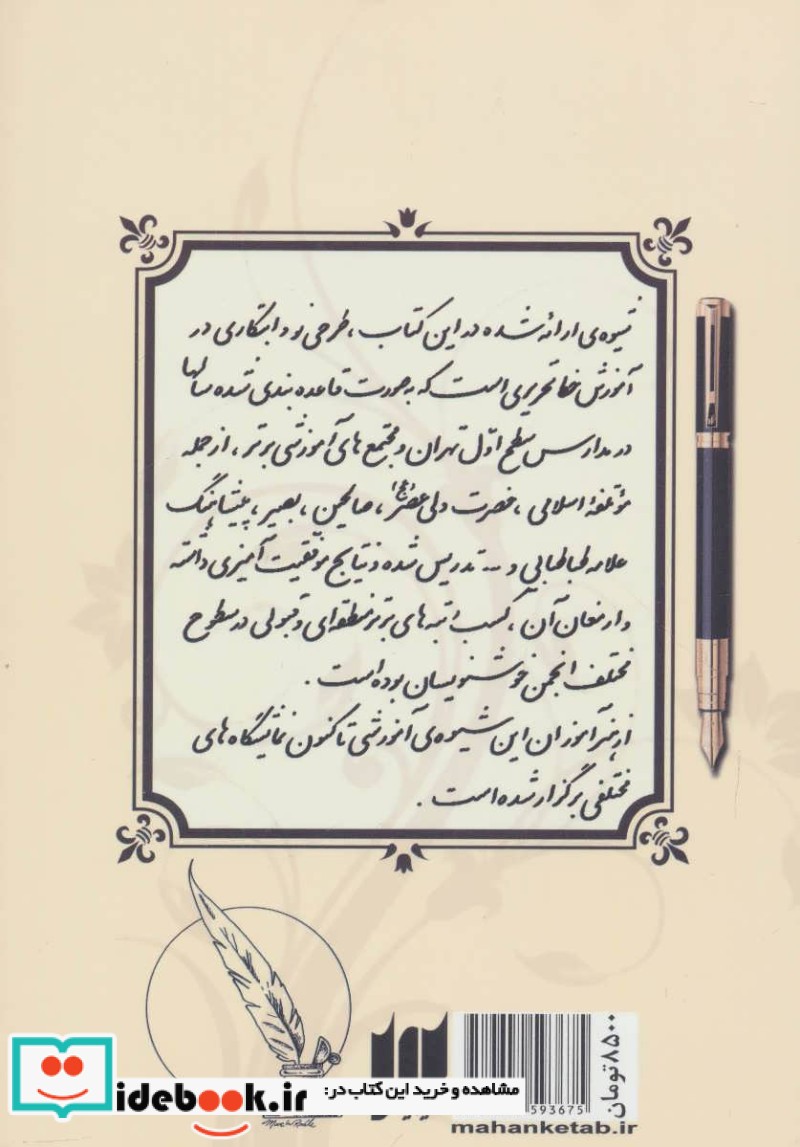 شیوه‌ی ارائه شده در این کتاب ، طرحی نو و ابتکاری در
آموزش خط تحریری است که به صورت قاعده بندی شده سالها
در مدارس سطح اوّل تهران و مجتمع های آموزشی برتر ، از جمله
مؤتلفهٔ اسلامی ، حضرت ولی عصر(عج) ، صالحین ، بصیر ، پیشاهنگ
علامه طباطبایی و ... تدریس شده و نتایج موفقیت آمیزی داشته
و ارمغان آن ، کسب رتبه های برتر منطقه‌ای و قبولی در سطوح
مختلف انجمن خوشنویسان بوده است .
از هنرآموزان این شیوه‌ی آموزشی تا کنون نمایشگاه های
مختلفی برگزار شده است .
۸۵۰۰ تومان
593675
مشاهده و خرید این کتاب در:
idebook.ir
mahanketab.ir